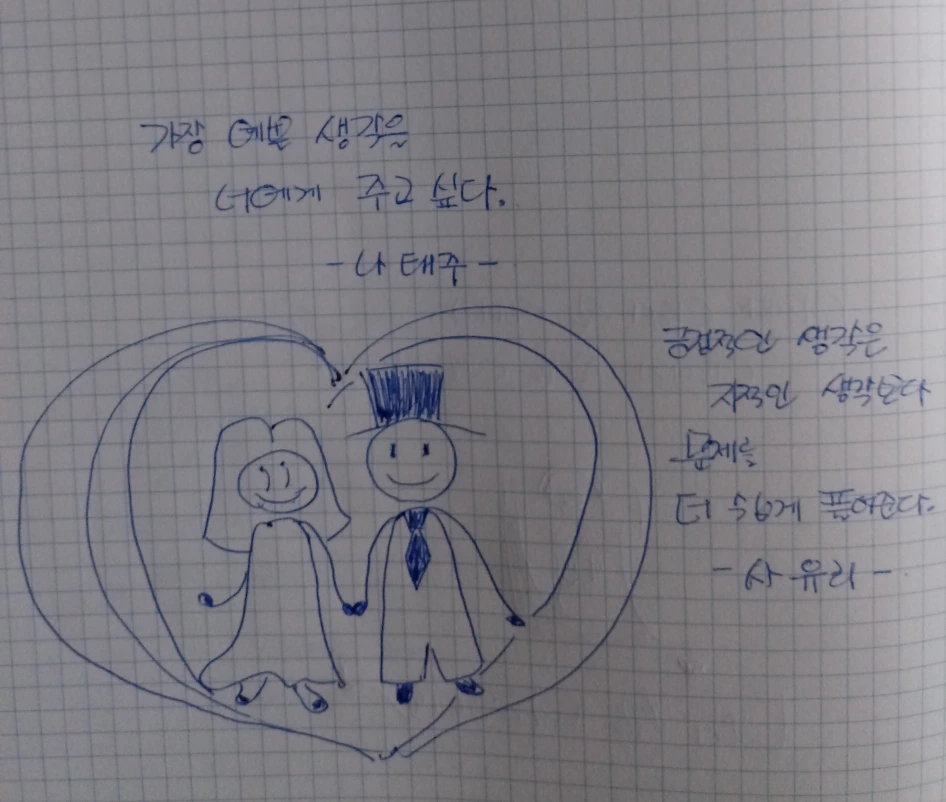 가장 예쁜 생각을
너에게 주고 싶다.
- 나태주 -
긍정적인 생각은
지적인 생각보다
문제를
더 쉽게 풀어준다.
- 사유리 -